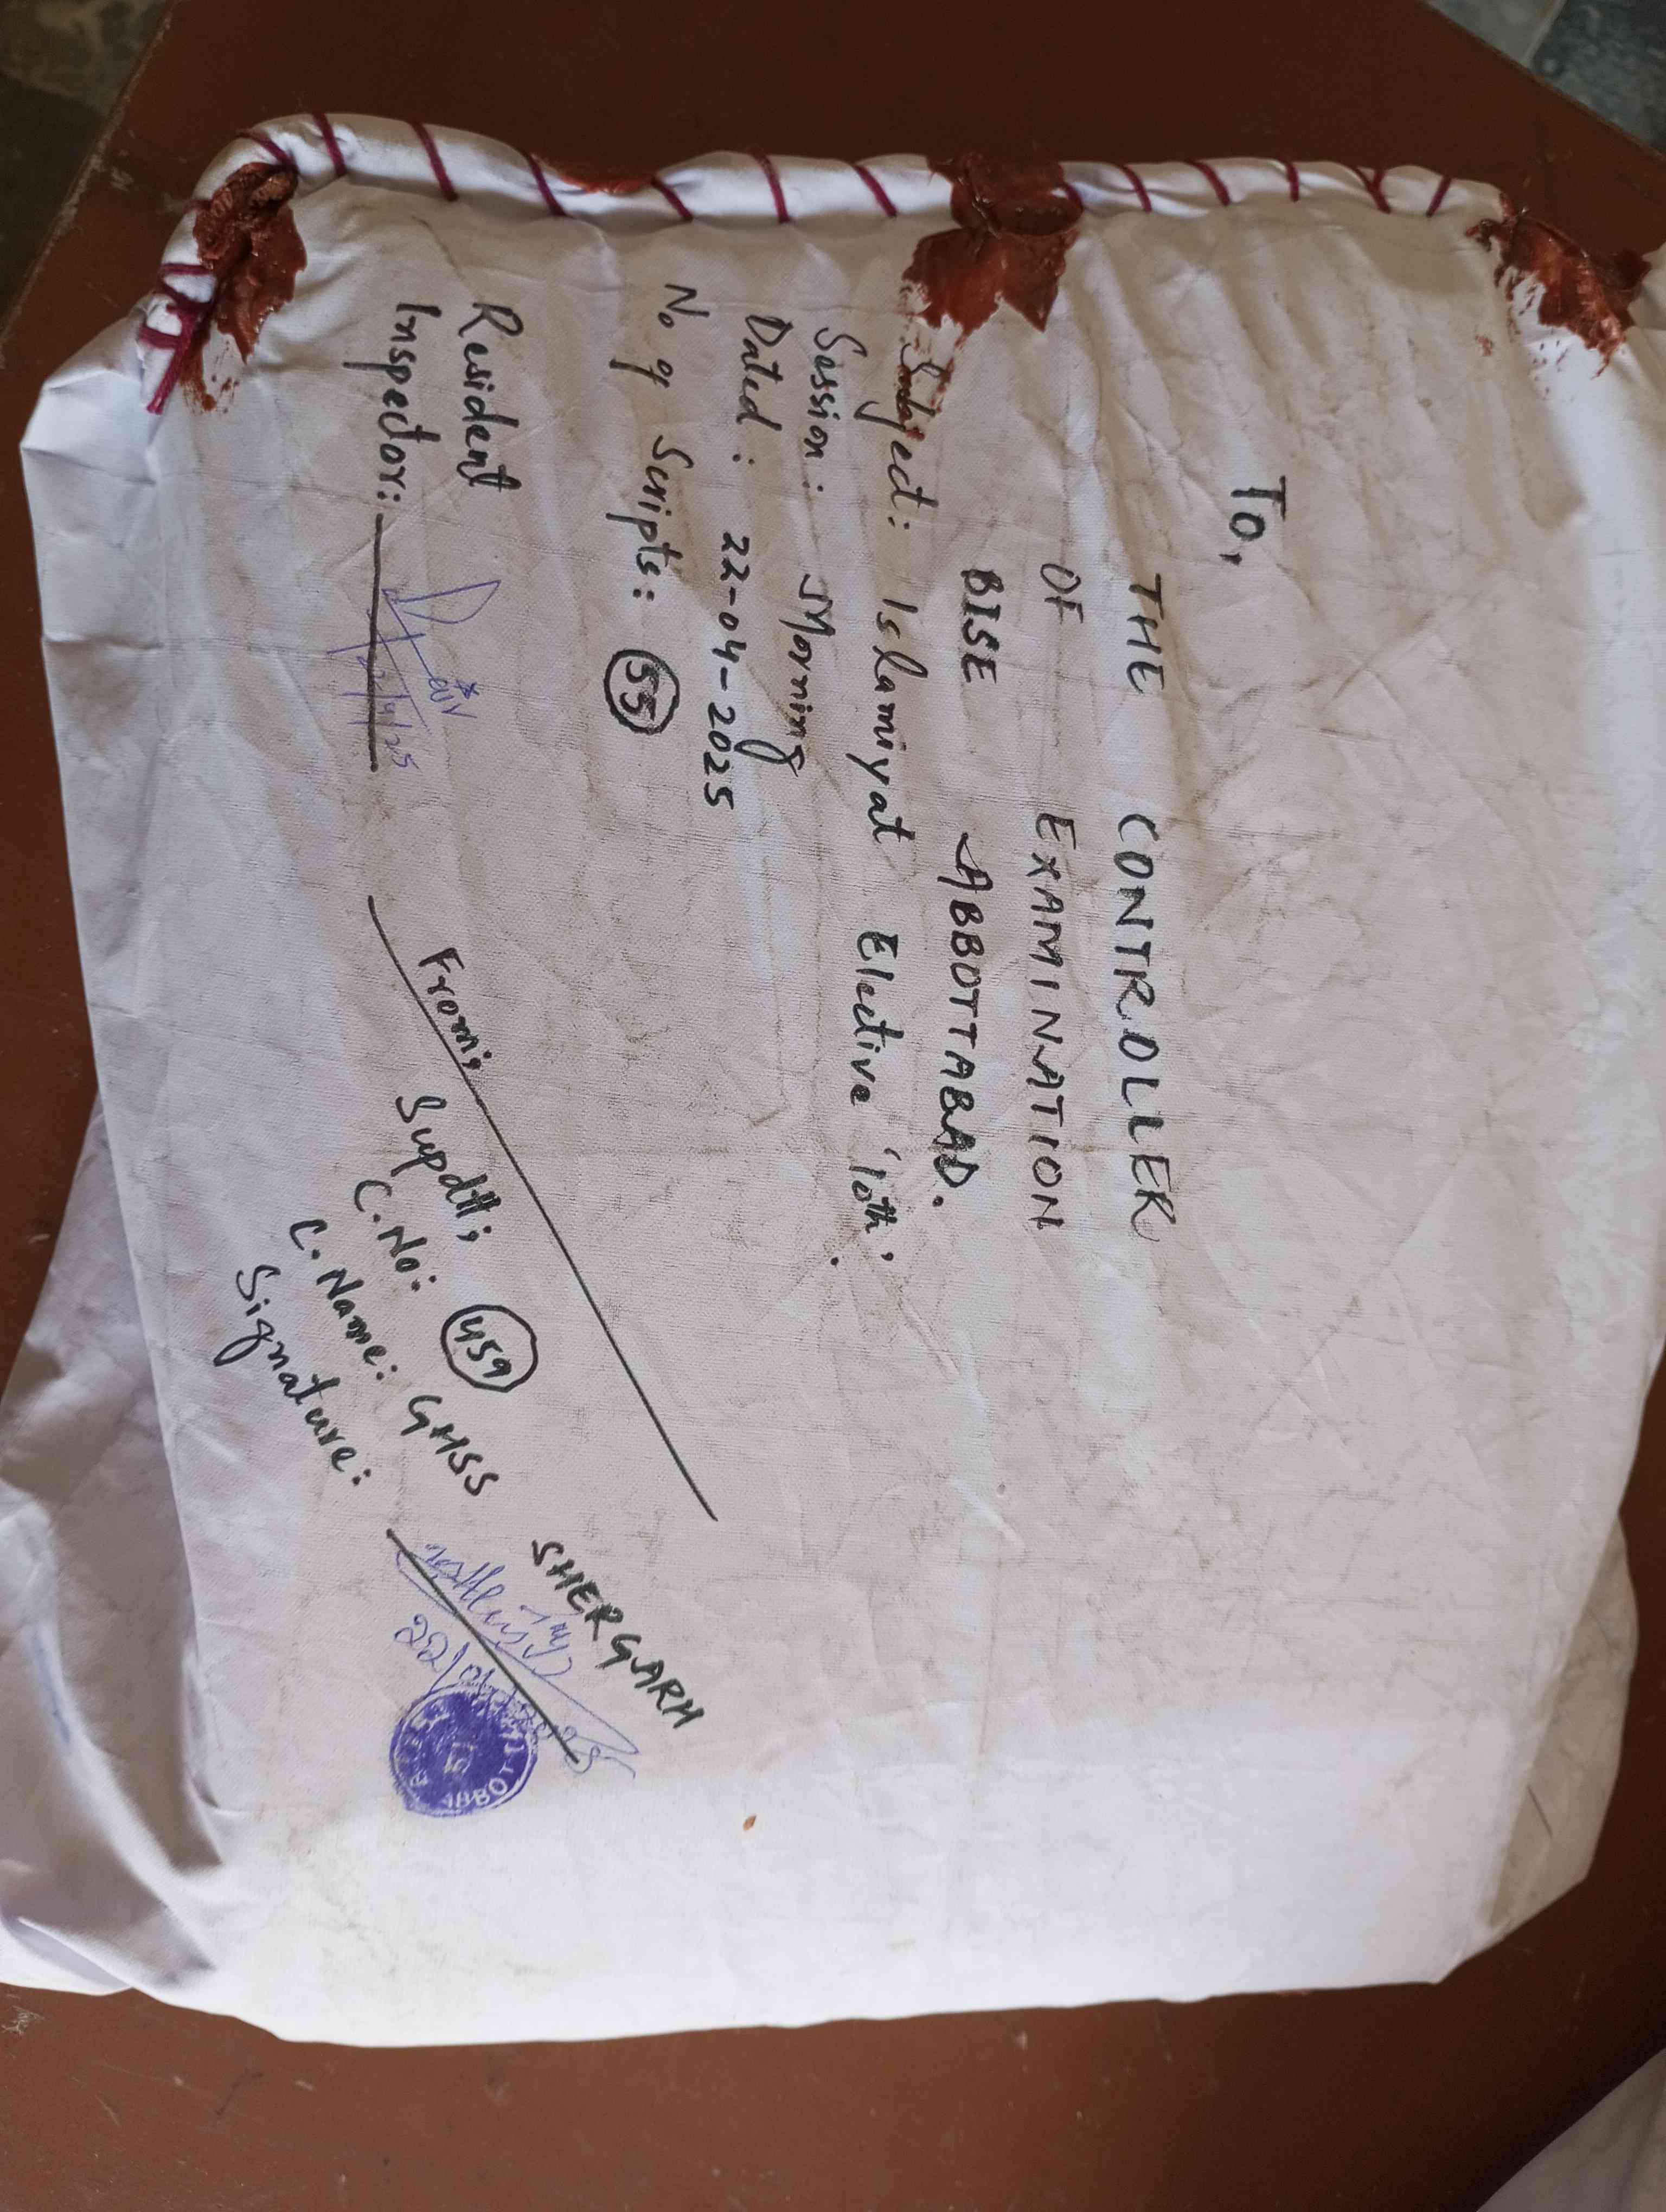 To,
THE CONTROLLER
OF EXAMINATION
BISE ABBOTTABAD.
Subject: Islamiyat Elective '10th'.
Session: Morning
Dated: 22-04-2025
No of Scripts: 55
Resident
Inspector:
From;
Supdtt;
C.No: 459
C. Name: GHSS SHERGARH
Signature: